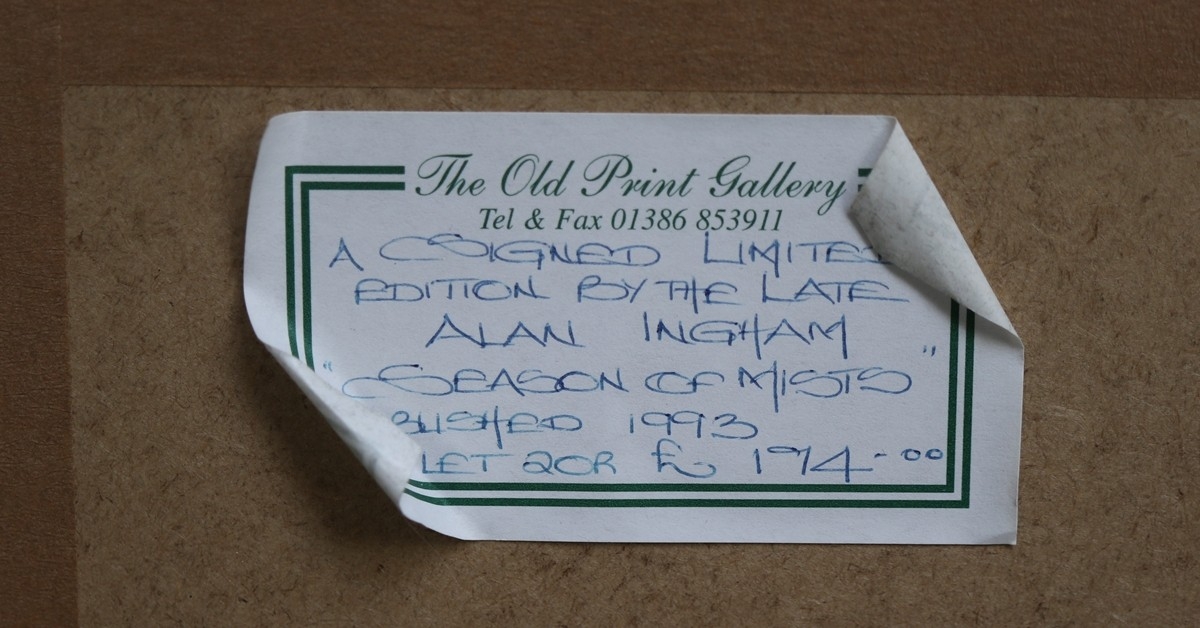 The Old Print Gallery
Tel & Fax 01386 853911
A SIGNED LIMITED
EDITION BY THE LATE
ALAN INGHAM
"SEASON OF MISTS"
BLISHED 1993
LET 20R £ 194-00